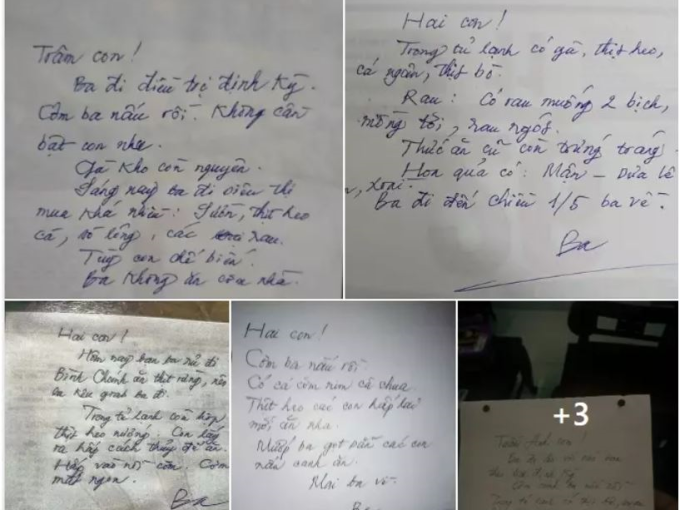 Trâm con!
Ba đi điều trị định kỳ.
Cơm ba nấu rồi. Không cần
bật con nha.
Gà kho còn nguyên.
Sáng nay ba đi siêu thị
mua khá nhiều: Sườn, thịt heo
cá, sò lông, các rau.
Tùy con chế biến.
Ba không ăn cơm nhà.
Hai con!
Trong tủ lạnh có gà, thịt heo,
cá ngân, thịt bò.
Rau: Có rau muống 2 bịch,
mồng tơi, rau ngót.
Thức ăn cũ còn trứng tráng
Hoa quả có: Mận - Dưa lê
, xoài.
Ba đi đến chiều 1/5 ba về.
Ba
Hai con!
Hôm nay bạn ba rủ đi
Bình Chánh ăn thịt rừng, nên
ba đi.
Trong tủ lạnh còn hộp
thịt heo nướng. Con lấy
ra hấp cách thủy để ăn.
Hấp vào nồi cơm. Cơm
mới ngon.
Ba
Hai con!
Cơm ba nấu rồi
Có cá cơm rim cà chua.
Thịt heo con hấp lại
mới ăn nha.
Mướp ba gọt sẵn con
nấu canh ăn.
Mai ba về.
Ba
+3
con!